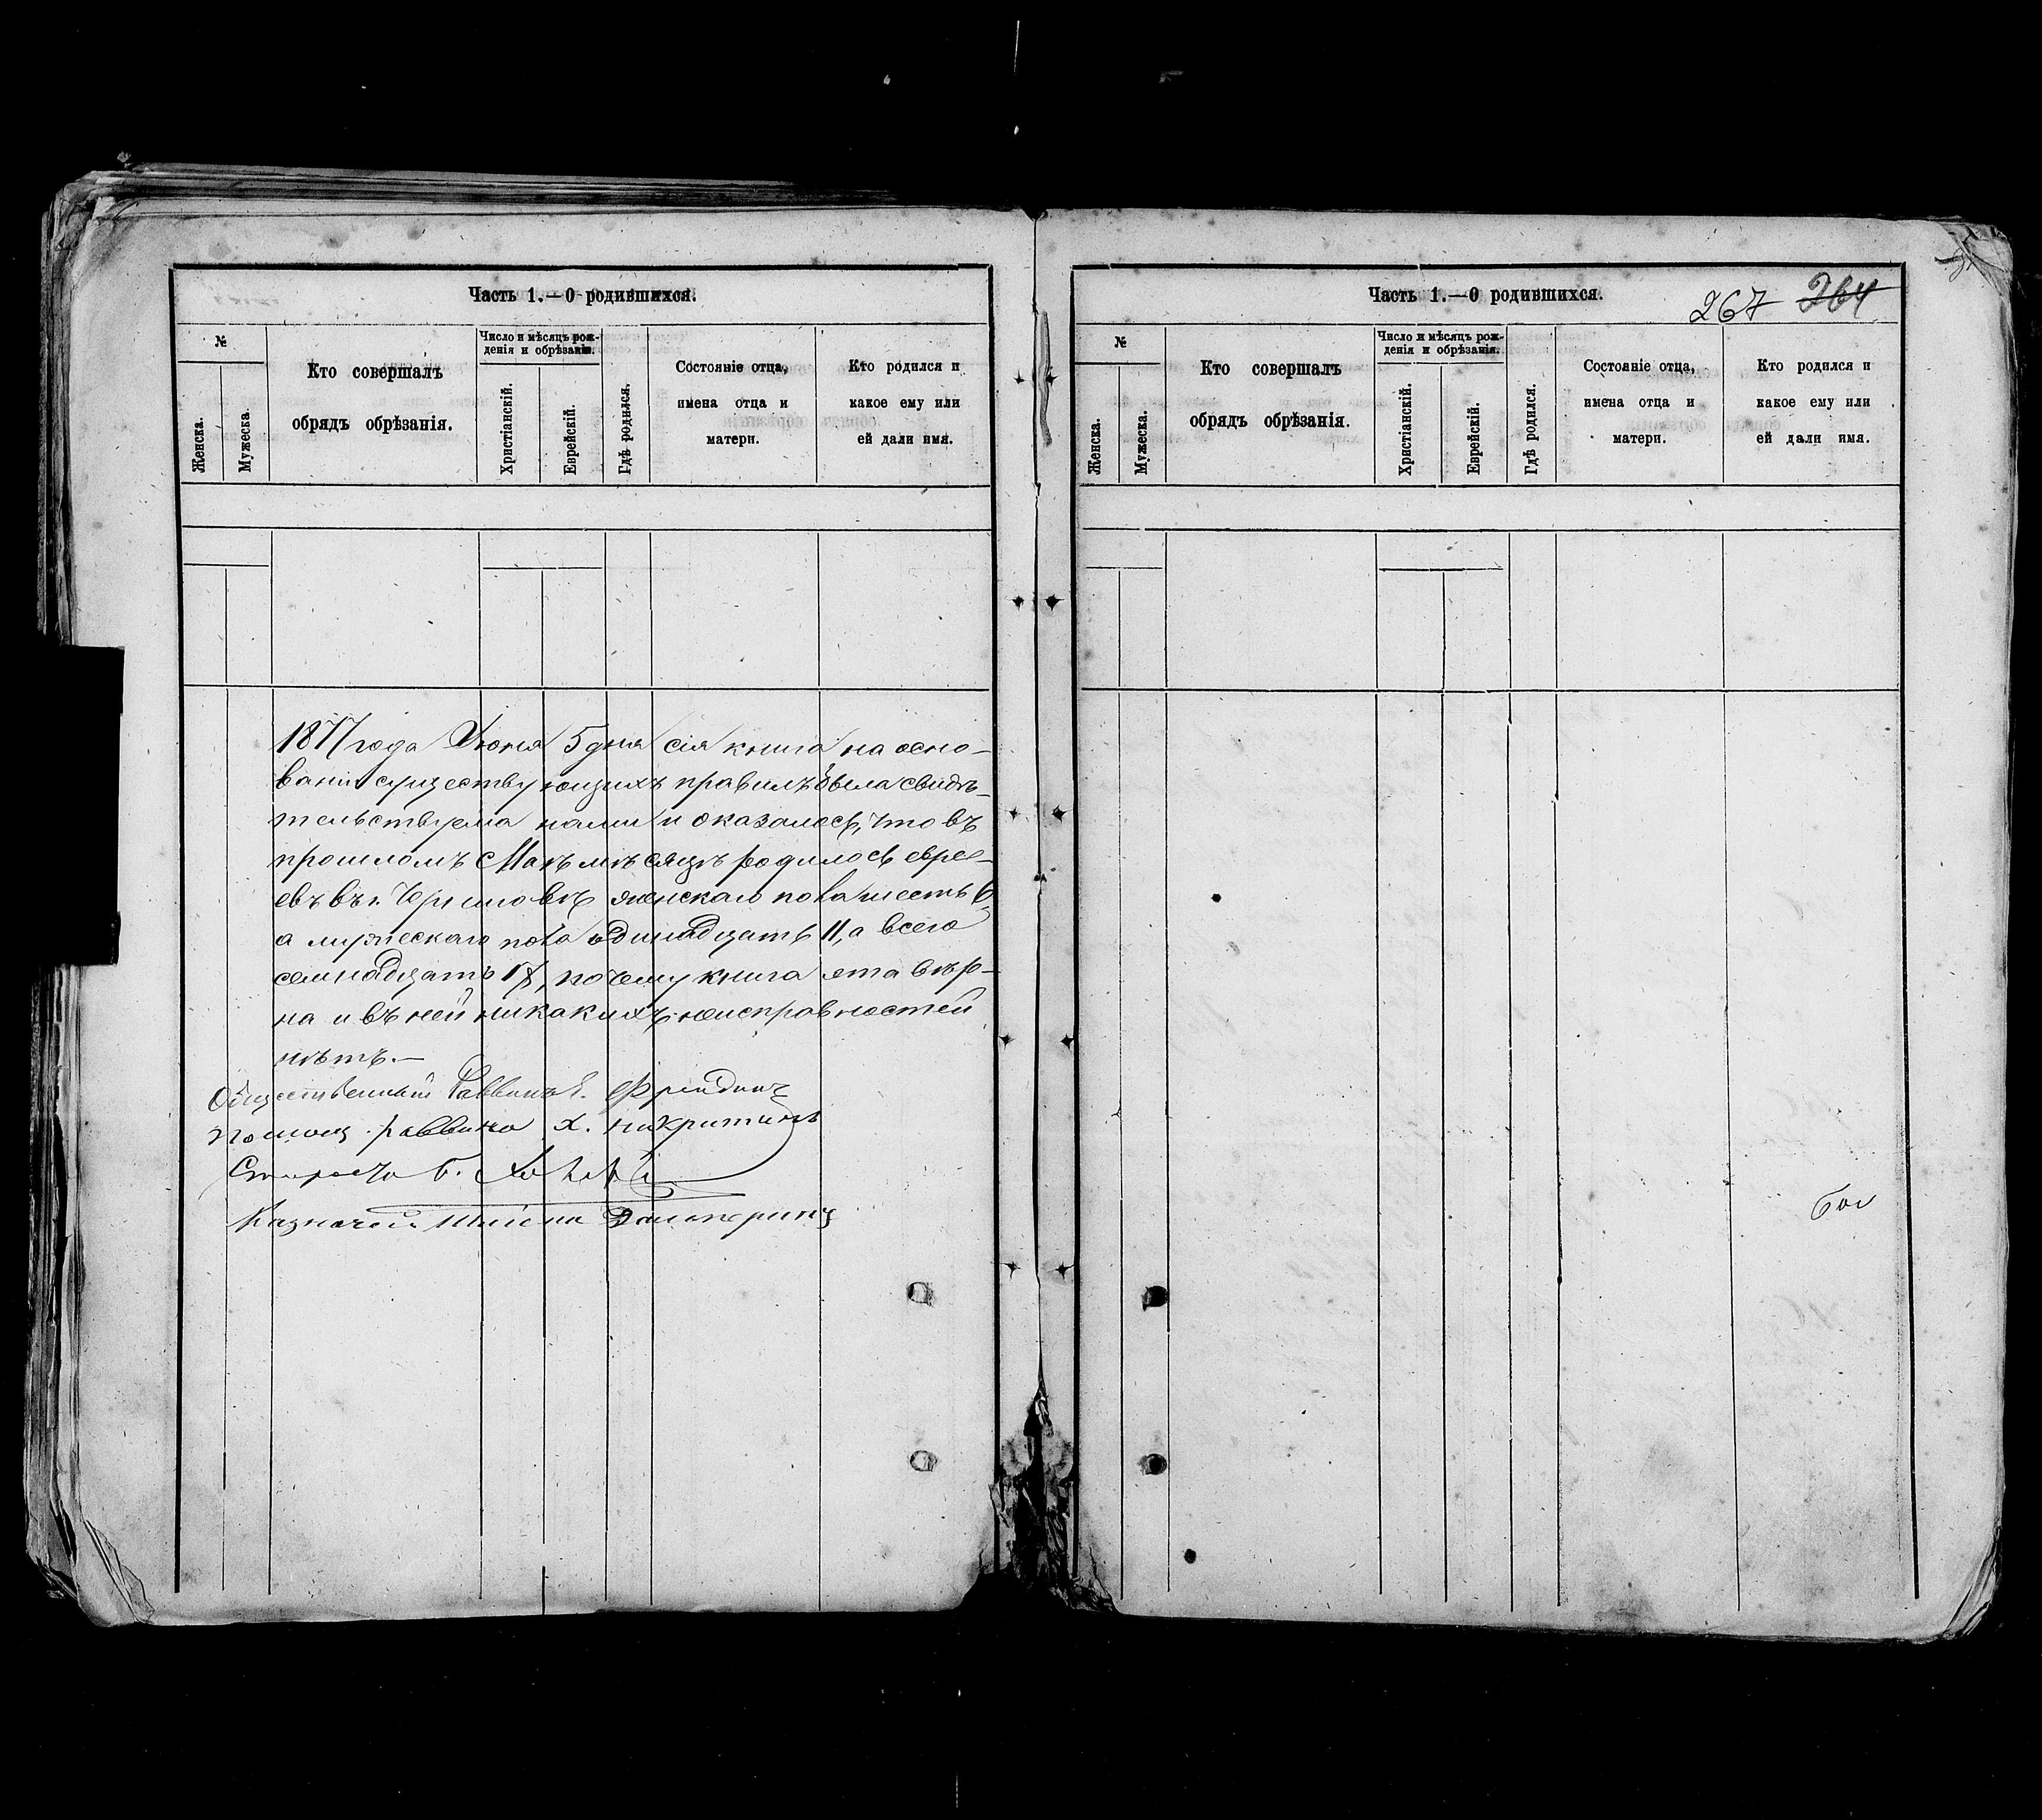 Часть 1.—О родившихся.
№
Женска.
Мужеска.
Кто совершалъ
обрядъ обрѣзанія.
Число и мѣсяцъ рож-
денія и обрѣзанія.
Христіанскій.
Еврейскій.
Гдѣ родился.
Состояніе отца,
имена отца и
матери.
Кто родился и
какое ему или
ей дали имя.
1877 года Июня 5 дня сія книга на осно-
ваніи существующихъ правилъ была свидѣ-
тельствуема нами и оказалось, что въ
прошломъ Маѣ мѣсяцѣ родилось евре-
евъ въ г. женскаго пола шесть 6,
а мужескаго пола одинадцать 11, а всего
семнадцать 17, почему книга эта вѣр-
на и въ ней никакихъ неисправностей
нѣтъ.—
Общественный Раввинъ Я. Фрейдинъ
Помощ. раввина Х. Никритинъ
Староста Б.
Казначей
Часть 1.—О родившихся.
267 264
№
Женска.
Мужеска.
Кто совершалъ
обрядъ обрѣзанія.
Число и мѣсяцъ рож-
денія и обрѣзанія.
Христіанскій.
Еврейскій.
Гдѣ родился.
Состояніе отца,
имена отца и
матери.
Кто родился и
какое ему или
ей дали имя.